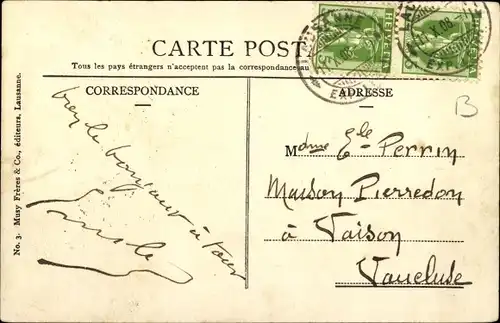 CARTE POST
Tous les pays étrangers n'acceptent pas la correspondance au
CORRESPONDANCE
ADRESSE
No. 3. Musy Frères & Co., éditeurs, Lausanne.
bien le bonjour à tous
Mdme Ele Perrin
Maison Pierredon
à Vaison
Vaucluse
B
HELVETIA
HELVETIA
LAUSANNE